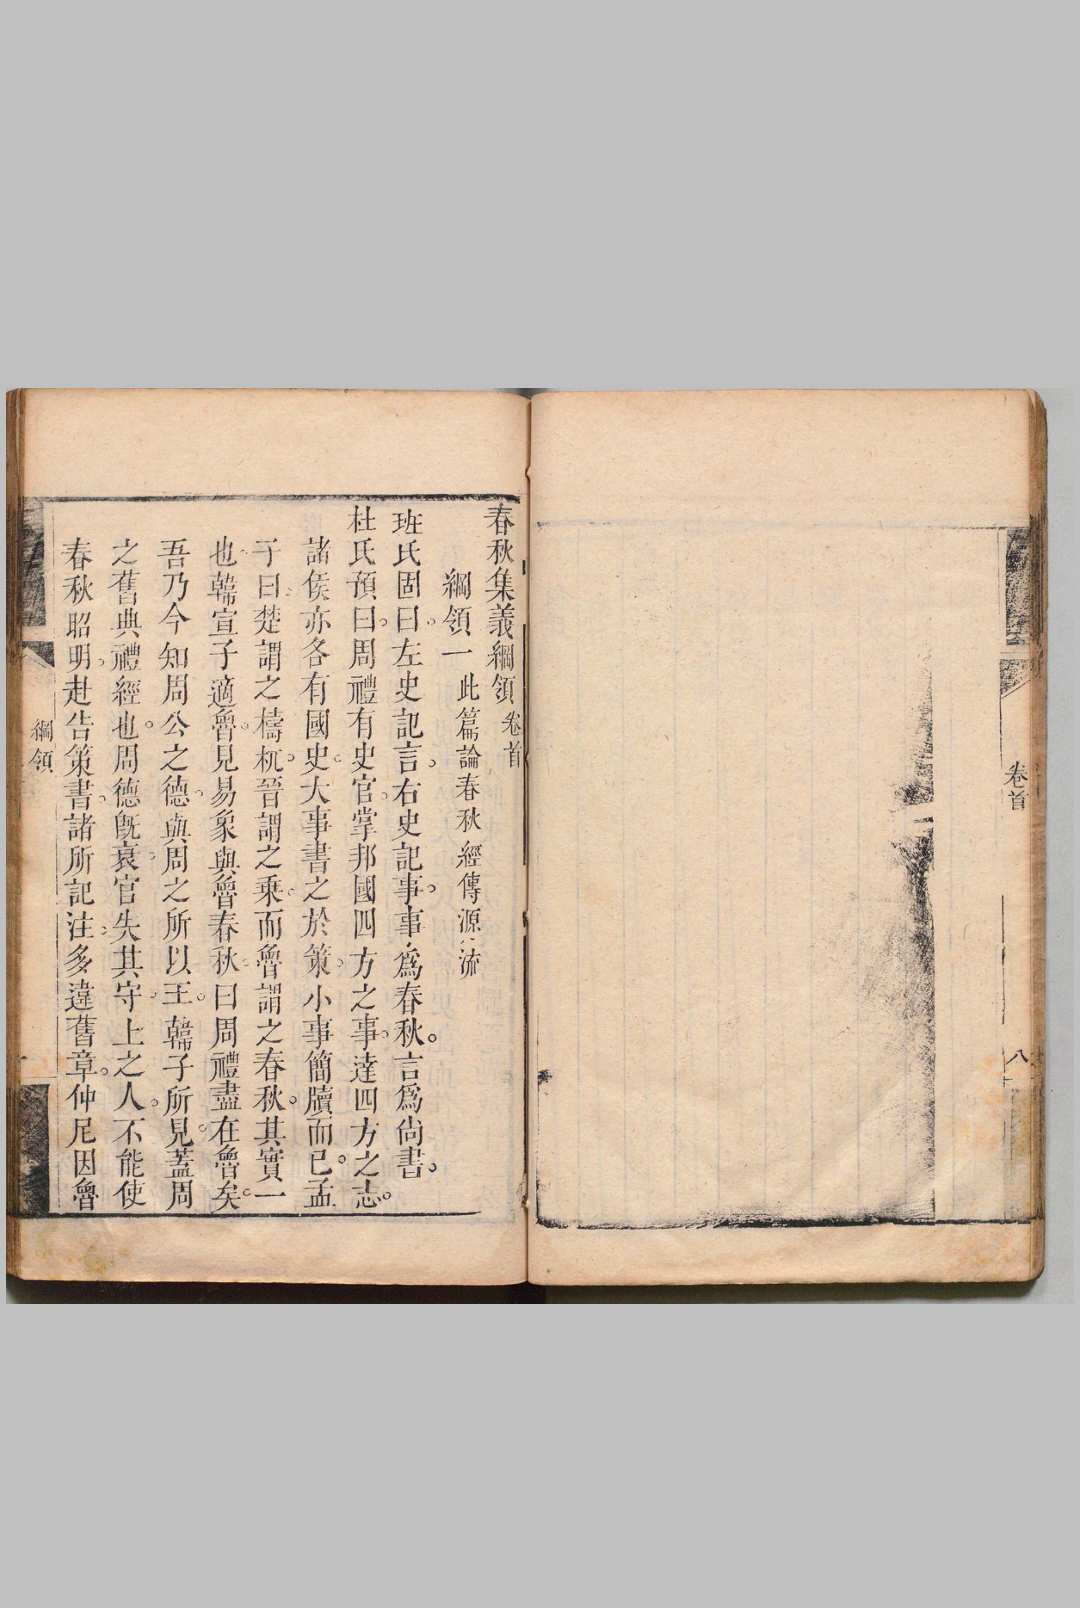 卷首
八
春秋集義綱領 卷首
綱領一 此篇論春秋經傳源流
班氏固曰左史記言右史記事事爲春秋言爲尙書
杜氏預曰周禮有史官掌邦國四方之事達四方之志
諸侯亦各有國史大事書之於策小事簡牘而已孟
子曰楚謂之檮杌晉謂之乘而魯謂之春秋其實一
也韓宣子適魯見易象與魯春秋曰周禮盡在魯矣
吾乃今知周公之德與周之所以王韓子所見蓋周
之舊典禮經也周德旣衰官失其守上之人不能使
春秋昭明赴告策書諸所記注多違舊章仲尼因魯
綱領